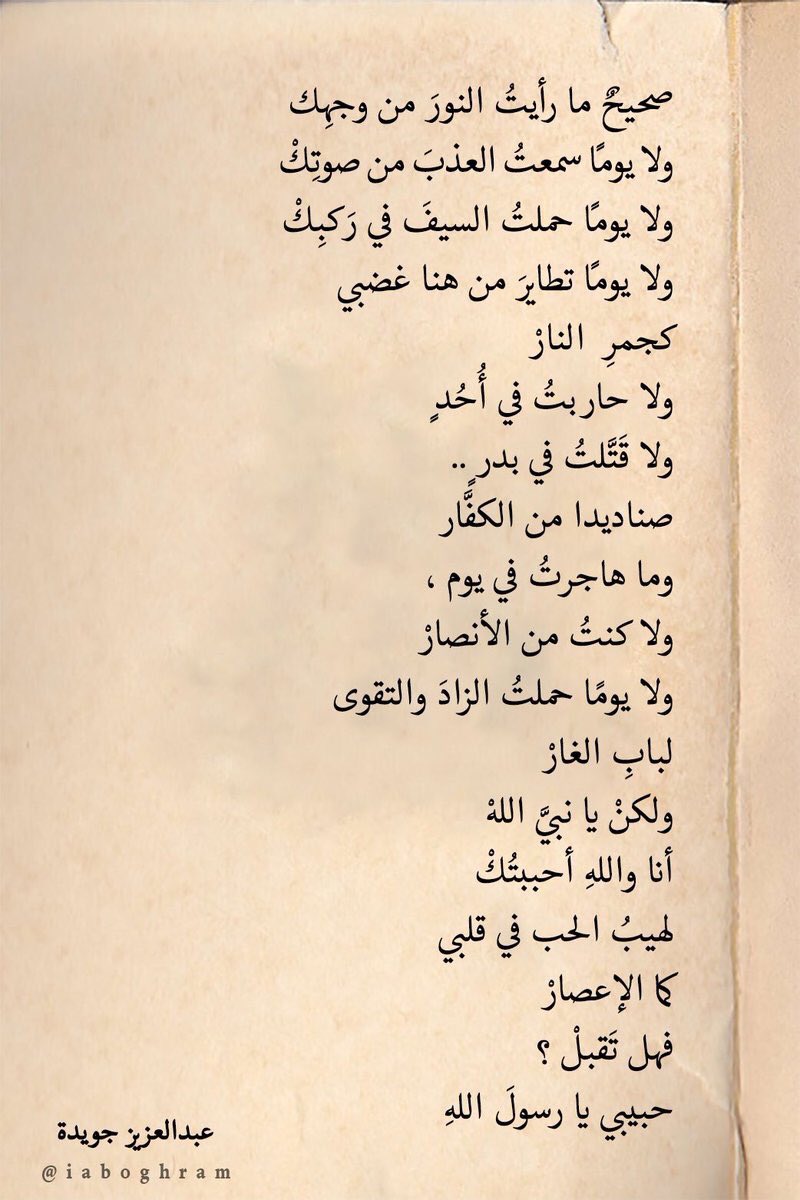 صحيحٌ ما رأيتُ النورَ من وجهِك
ولا يومًا سمعتُ العذبَ من صوتِكْ
ولا يومًا حملتُ السيفَ في رَكبِكْ
ولا يومًا تطايرَ من هنا غضبي
كجمرِ النارْ
ولا حاربتُ في أُحُدٍ
ولا قَتَّلتُ في بدرٍ ..
صناديدا من الكفَّار
وما هاجرتُ في يوم ،
ولا كنتُ من الأنصارْ
ولا يومًا حملتُ الزادَ والتقوى
لبابِ الغارْ
ولكنْ يا نبيَّ اللهْ
أنا واللهِ أحببتُكْ
لهيبُ الحب في قلبي
كما الإعصارْ
فهل تَقبلْ ؟
حبيبي يا رسولَ اللهِ
عبدالعزيز جويدة
@iaboghram